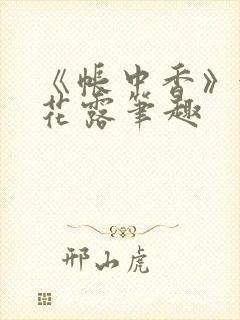 《帐中香》
花露笔趣
邢山虎